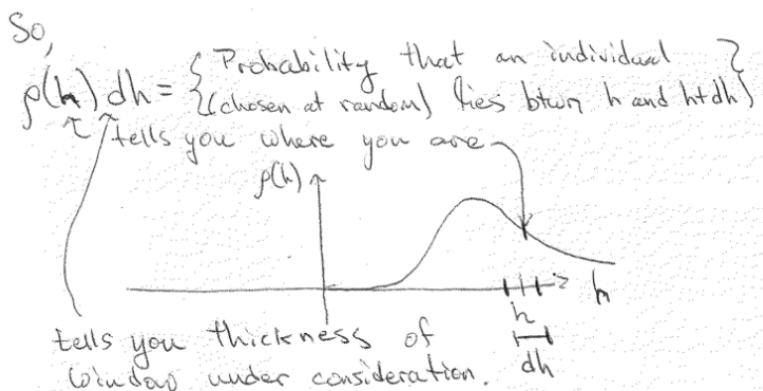 So,
ρ(h) dh = { Probability that an individual }
{ (chosen at random) lies btwn h and h+dh }
tells you where you are
ρ(h)
h
h
dh
tells you thickness of
window under consideration.